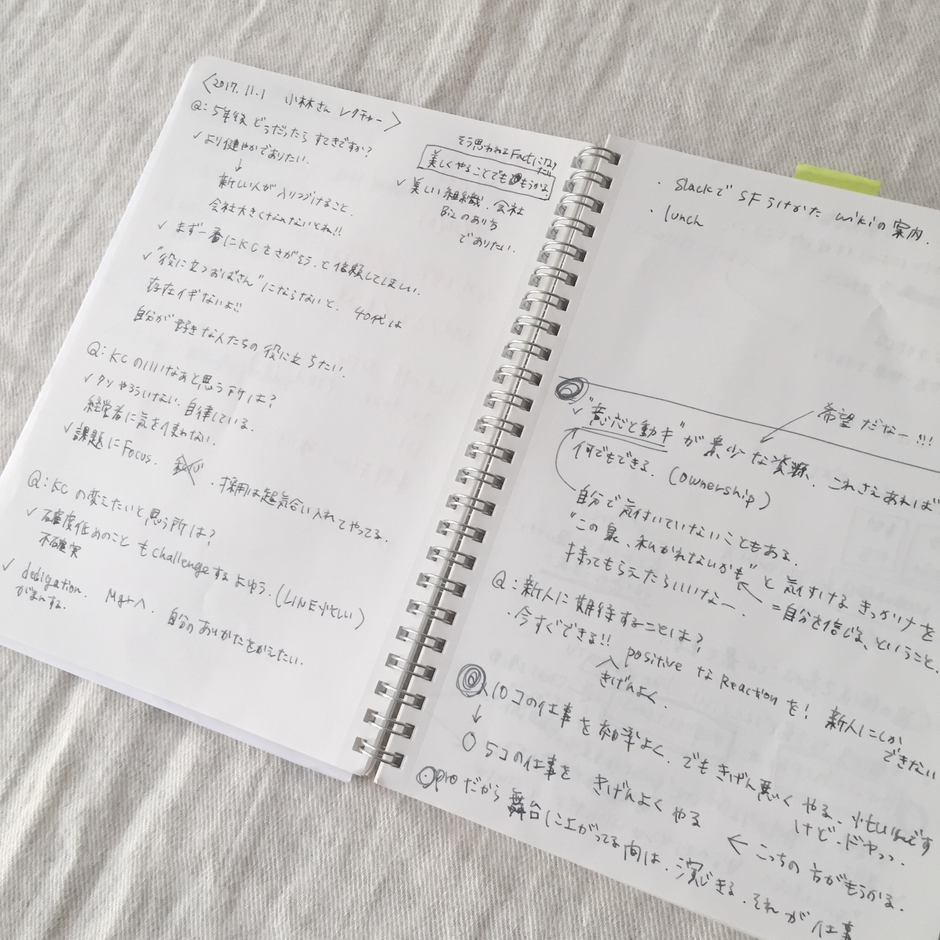 <2017.11.1 小林さん レクチャー>
Q:5年後どうだったらすてきですか?
✓より健やかでありたい.
↓
新しい人が入りつづけること.
会社大きくなれないとね!!
そう思われるFactになりたい
美しくやることでももうかる
✓美しい組織.会社
Bizのあり方
でありたい.
✓まず一番にKCをさがそう.と信頼してほしい.
✓"役に立つおばさん"にならないと、40代は
存在イギないよ!!
自分が好きな人たちの役に立ちたい.
Q:KCのいいなぁと思う所は?
✓クソやろういない.自律している.
経営者に気を使わない.
✓課題にFocus.
・採用は超気合い入れてやってる.
Q:KCの変えたいと思う所は?
✓確度低めのこともchallengeするよゆう.(LINEがむしい)
不確実
✓dedigation. Mgrへ
がまんする.
自分のありかたをかえたい.
・SlackでSFうけかた wikiの案内.
・lunch
希望だなー!!!
✓"意志と動キ"が最少な資源.これさえあれば
何でもできる.(ownership)
自分で気付いていないこともある.
"この泉、私かれないかも"と気付けるきっかけを
持ってもらえたらいいなー.
=自分を信じる、ということ.
Q:新人に期待することは?
・今すぐできる!! positiveなReactionを! 新人にしか
できない
きげんよく.
10コの仕事を効率よく.でもきげん悪くやる.忙しいんです
けど.ドヤっ.
↓
5コの仕事を きげんよくやる
← こっちの方がもうかる.
proだから舞台に上がってる間は.演じきる.それが仕事